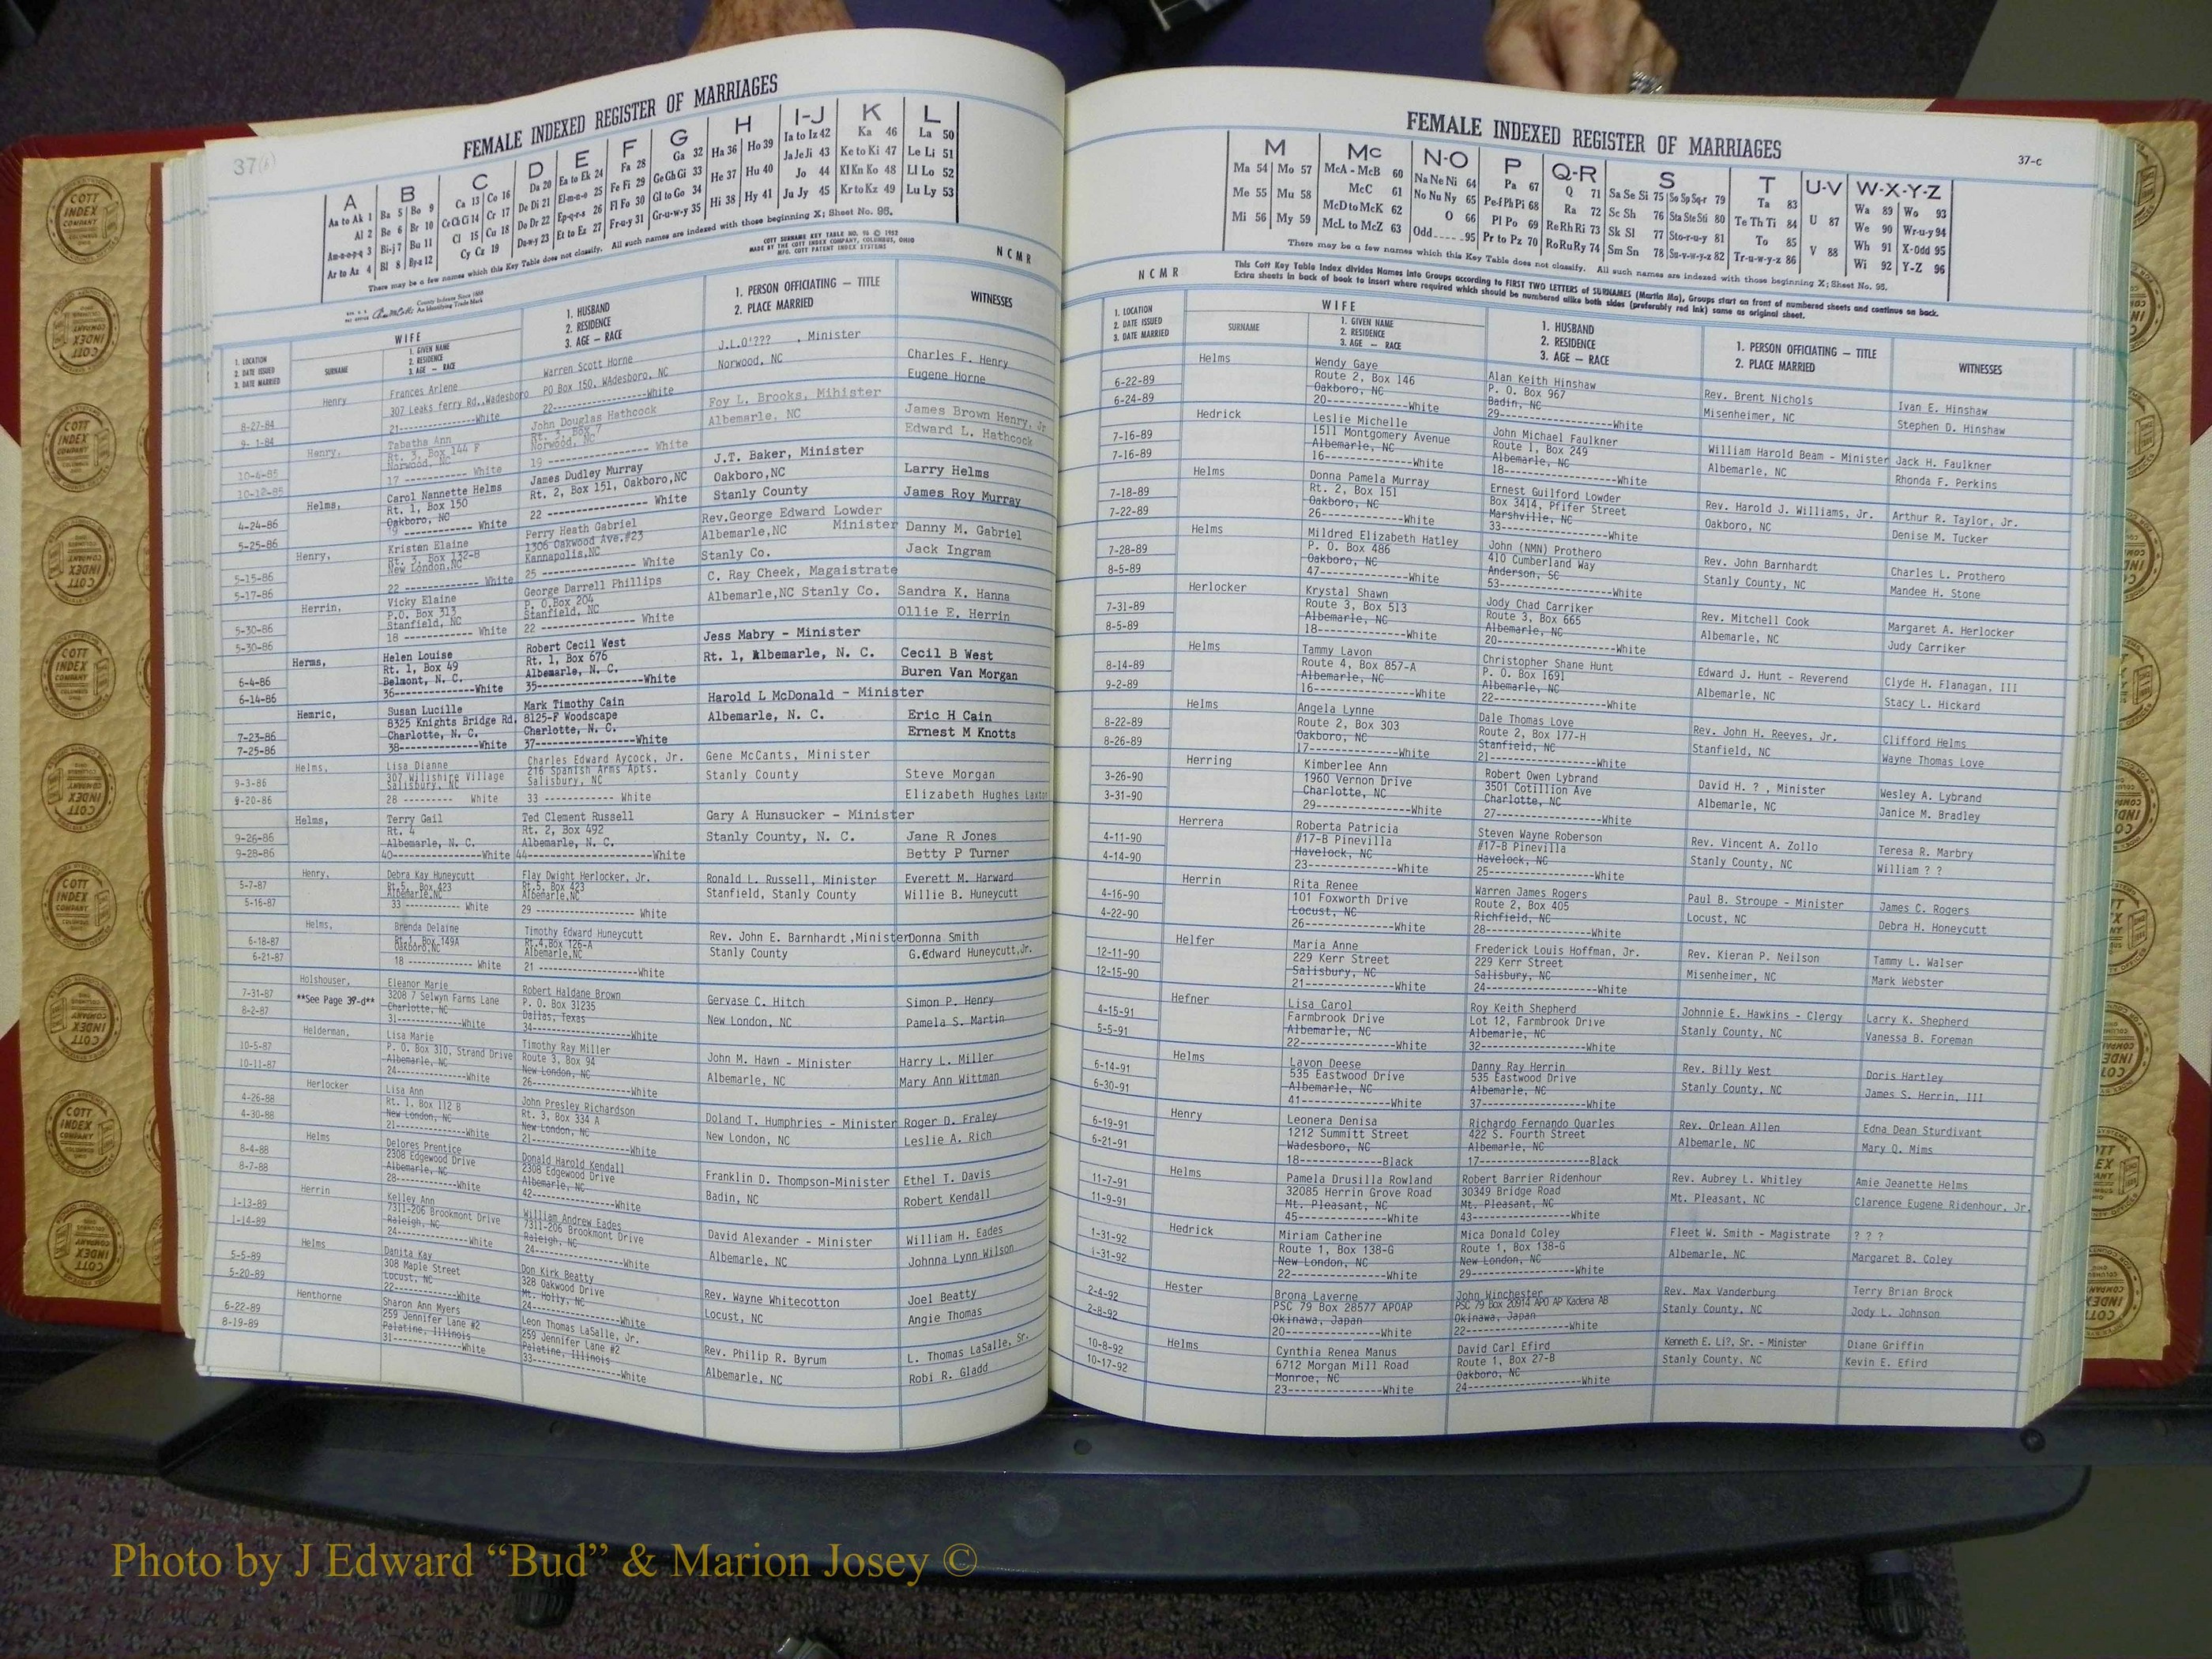 37(b)
FEMALE INDEXED REGISTER OF MARRIAGES
A B C D E F G H I-J K L
Aa to Ak 1 Ba 5 Bo 9 Ca 13 Co 16 Da 20 Ea to Ek 24 Fa 28 Ga 32 Ha 36 Ho 39 Ia to Iz 42 Ka 46 La 50
Al 2 Be 6 Br 10 Ce Ch Ci 14 Cr 17 De Di 21 El-m-n-o 25 Fe Fi 29 Ge Gh Gi 33 He 37 Hu 40 Ja Je Ji 43 Ke to Ki 47 Le Li 51
Am-n-o-p-q 3 Bi-j 7 Bu 11 Cl 15 Cu 18 Do Dr 22 Ep-q-r-s 26 Fl Fo 30 Gl to Go 34 Hi 38 Hy 41 Jo 44 Kl Kn Ko 48 Ll Lo 52
Ar to Az 4 Bl 8 By-z 12 Cy Cz 19 Du-w-y 23 Et to Ez 27 Fr-u-y 31 Gr-u-w-y 35 Ju Jy 45 Kr to Kz 49 Lu Ly 53
There may be a few names which this Key Table does not classify. All such names are indexed with those beginning X; Sheet No. 95.
COTT SURNAME KEY TABLE NO. 96 © 1952
MADE BY THE COTT INDEX COMPANY, COLUMBUS, OHIO
MFG. COTT PATENT INDEX SYSTEMS
NCMR
County Indexes Since 1888
An Identifying Trade Mark
1. LOCATION
2. DATE ISSUED
3. DATE MARRIED
WIFE
SURNAME
1. GIVEN NAME
2. RESIDENCE
3. AGE — RACE
1. HUSBAND
2. RESIDENCE
3. AGE — RACE
1. PERSON OFFICIATING — TITLE
2. PLACE MARRIED
WITNESSES
8-27-84
9- 1-84
Henry
Frances Arlene
307 Leaks ferry Rd.,Wadesboro
21----------White
Warren Scott Horne
PO Box 150, WAdesboro, NC
22--------------White
J.L.O'??? , Minister
Norwood, NC
Charles F. Henry
Eugene Horne
10-4-85
10-12-85
Henry,
Tabatha Ann
Rt. 3, Box 144 F
Norwood, NC
17 --------- White
John Douglas Hathcock
Rt. 3, Box 7
Norwood, NC
19 --------------- White
Foy L. Brooks, Mihister
Albemarle, NC
James Brown Henry, Jr
Edward L. Hathcock
4-24-86
5-25-86
Helms,
Carol Nannette Helms
Rt. 1, Box 150
Oakboro, NC
19 ---------- White
James Dudley Murray
Rt. 2, Box 151, Oakboro,NC
22 --------------- White
J.T. Baker, Minister
Oakboro,NC
Stanly County
Larry Helms
James Roy Murray
5-15-86
5-17-86
Henry,
Kristen Elaine
Rt. 3, Box 132-B
New London,NC
22 ----------- White
Perry Heath Gabriel
1306 Oakwood Ave.#23
Kannapolis,NC
25 --------------- White
Rev.George Edward Lowder
Minister
Albemarle,NC
Stanly Co.
Danny M. Gabriel
Jack Ingram
5-30-86
5-30-86
Herrin,
Vicky Elaine
P.O. Box 313
Stanfield, NC
18 ----------- White
George Darrell Phillips
P. O.Box 204
Stanfield, NC
22 --------------- White
C. Ray Cheek, Magaistrate
Albemarle,NC Stanly Co.
Sandra K. Hanna
Ollie E. Herrin
6-4-86
6-14-86
Herms,
Helen Louise
Rt. 1, Box 49
Belmont, N. C.
36-------------White
Robert Cecil West
Rt. 1, Box 676
Albemarle, N. C.
35------------------White
Jess Mabry - Minister
Rt. 1, Albemarle, N. C.
Cecil B West
Buren Van Morgan
7-23-86
7-25-86
Hemric,
Susan Lucille
8325 Knights Bridge Rd.
Charlotte, N. C.
38-------------White
Mark Timothy Cain
8125-F Woodscape
Charlotte, N. C.
37-----------------White
Harold L McDonald - Minister
Albemarle, N. C.
Eric H Cain
Ernest M Knotts
9-3-86
9-20-86
Helms,
Lisa Dianne
307 Wilishire Village
Salisbury, NC
28 --------- White
Charles Edward Aycock, Jr.
216 Spanish Arms Apts.
Salisbury, NC
33 ------------ White
Gene McCants, Minister
Stanly County
Steve Morgan
Elizabeth Hughes Laxton
9-26-86
9-28-86
Helms,
Terry Gail
Rt. 4
Albemarle, N. C.
40-------------White
Ted Clement Russell
Rt. 2, Box 492
Albemarle, N. C.
44------------------White
Gary A Hunsucker - Minister
Stanly County, N. C.
Jane R Jones
Betty P Turner
5-7-87
5-16-87
Henry,
Debra Kay Huneycutt
Rt.5, Box 423
Albemarle,NC
33 ---------- White
Flay Dwight Herlocker, Jr.
Rt.5, Box 423
Albemarle,NC
29 ------------------ White
Ronald L. Russell, Minister
Stanfield, Stanly County
Everett M. Harward
Willie B. Huneycutt
6-18-87
6-21-87
Helms,
Brenda Delaine
Rt.1, Box 149A
Oakboro,NC
18 ------------ White
Timothy Edward Huneycutt
Rt.4,Box 126-A
Albemarle,NC
21 ----------------- White
Rev. John E. Barnhardt ,Minister
Stanly County
Donna Smith
G.Edward Huneycutt,Jr.
7-31-87
8-2-87
Holshouser,
**See Page 39-d**
Eleanor Marie
3208 7 Selwyn Farms Lane
Charlotte, NC
31-------------White
Robert Haldane Brown
P. O. Box 31235
Dallas, Texas
34------------------White
Gervase C. Hitch
New London, NC
Simon P. Henry
Pamela S. Martin
10-5-87
10-11-87
Helderman,
Lisa Marie
P. O. Box 310, Strand Drive
Albemarle, NC
24-------------White
Timothy Ray Miller
Route 3, Box 94
New London, NC
26------------------White
John M. Hawn - Minister
Albemarle, NC
Harry L. Miller
Mary Ann Wittman
4-26-88
4-30-88
Herlocker
Lisa Ann
Rt. 1, Box 112 B
New London, NC
21-------------White
John Presley Richardson
Rt. 3, Box 334 A
New London, NC
21------------------White
Doland T. Humphries - Minister
New London, NC
Roger D. Fraley
Leslie A. Rich
8-4-88
8-7-88
Helms
Delores Prentice
2308 Edgewood Drive
Albemarle, NC
28-------------White
Donald Harold Kendall
2308 Edgewood Drive
Albemarle, NC
42------------------White
Franklin D. Thompson-Minister
Badin, NC
Ethel T. Davis
Robert Kendall
1-13-89
1-14-89
Herrin
Kelley Ann
7311-206 Brookmont Drive
Raleigh, NC
24-------------White
William Andrew Eades
7311-206 Brookmont Drive
Raleigh, NC
24------------------White
David Alexander - Minister
Albemarle, NC
William H. Eades
Johnna Lynn Wilson
5-5-89
5-20-89
Helms
Danita Kay
308 Maple Street
Locust, NC
22-------------White
Don Kirk Beatty
328 Oakwood Drive
Mt. Holly, NC
24------------------White
Rev. Wayne Whitecotton
Locust, NC
Joel Beatty
Angie Thomas
6-22-89
8-19-89
Henthorne
Sharon Ann Myers
259 Jennifer Lane #2
Palatine, Illinois
31-------------White
Leon Thomas LaSalle, Jr.
259 Jennifer Lane #2
Palatine, Illinois
33------------------White
Rev. Philip R. Byrum
Albemarle, NC
L. Thomas LaSalle, Sr.
Robi R. Gladd
FEMALE INDEXED REGISTER OF MARRIAGES
37-c
M Mc N-O P Q-R S T U-V W-X-Y-Z
Ma 54 Mo 57 McA - McB 60 Na Ne Ni 64 Pa 67 Q 71 Sa Se Si 75 So Sp Sq-r 79 Ta 83 U 87 Wa 89 Wo 93
Me 55 Mu 58 McC 61 No Nu Ny 65 Pe-f Ph Pi 68 Ra 72 Sc Sh 76 Sta Ste Sti 80 Te Th Ti 84 V 88 We 90 Wr-u-y 94
Mi 56 My 59 McD to McK 62 O 66 Pl Po 69 Re Rh Ri 73 Sk Sl 77 Sto-r-u-y 81 To 85 Wh 91 X-Odd 95
McL to McZ 63 Odd 95 Pr to Pz 70 Ro Ru Ry 74 Sm Sn 78 Su-v-w-y-z 82 Tr-u-w-y-z 86 Wi 92 Y-Z 96
There may be a few names which this Key Table does not classify. All such names are indexed with those beginning X; Sheet No. 95.
NCMR
This Cott Key Table Index divides Names into Groups according to FIRST TWO LETTERS of SURNAMES (Martin Ma), Groups start on front of numbered sheets and continue on back.
Extra sheets in back of book to insert where required which should be numbered alike both sides (preferably red ink) same as original sheet.
1. LOCATION
2. DATE ISSUED
3. DATE MARRIED
WIFE
SURNAME
1. GIVEN NAME
2. RESIDENCE
3. AGE — RACE
1. HUSBAND
2. RESIDENCE
3. AGE — RACE
1. PERSON OFFICIATING — TITLE
2. PLACE MARRIED
WITNESSES
6-22-89
6-24-89
Helms
Wendy Gaye
Route 2, Box 146
Oakboro, NC
20-------------White
Alan Keith Hinshaw
P. O. Box 967
Badin, NC
29------------------White
Rev. Brent Nichols
Misenheimer, NC
Ivan E. Hinshaw
Stephen D. Hinshaw
7-16-89
7-16-89
Hedrick
Leslie Michelle
1511 Montgomery Avenue
Albemarle, NC
16-------------White
John Michael Faulkner
Route 1, Box 249
Albemarle, NC
18------------------White
William Harold Beam - Minister
Albemarle, NC
Jack H. Faulkner
Rhonda F. Perkins
7-18-89
7-22-89
Helms
Donna Pamela Murray
Rt. 2, Box 151
Oakboro, NC
26-------------White
Ernest Guilford Lowder
Box 3414, Pfifer Street
Marshville, NC
33------------------White
Rev. Harold J. Williams, Jr.
Oakboro, NC
Arthur R. Taylor, Jr.
Denise M. Tucker
7-28-89
8-5-89
Helms
Mildred Elizabeth Hatley
P. O. Box 486
Oakboro, NC
47-------------White
John (NMN) Prothero
410 Cumberland Way
Anderson, SC
53------------------White
Rev. John Barnhardt
Stanly County, NC
Charles L. Prothero
Mandee H. Stone
7-31-89
8-5-89
Herlocker
Krystal Shawn
Route 3, Box 513
Albemarle, NC
18-------------White
Jody Chad Carriker
Route 3, Box 665
Albemarle, NC
20------------------White
Rev. Mitchell Cook
Albemarle, NC
Margaret A. Herlocker
Judy Carriker
8-14-89
9-2-89
Helms
Tammy Lavon
Route 4, Box 857-A
Albemarle, NC
16-------------White
Christopher Shane Hunt
P. O. Box 1691
Albemarle, NC
22------------------White
Edward J. Hunt - Reverend
Albemarle, NC
Clyde H. Flanagan, III
Stacy L. Hickard
8-22-89
8-26-89
Helms
Angela Lynne
Route 2, Box 303
Oakboro, NC
17-------------White
Dale Thomas Love
Route 2, Box 177-H
Stanfield, NC
21------------------White
Rev. John H. Reeves, Jr.
Stanfield, NC
Clifford Helms
Wayne Thomas Love
3-26-90
3-31-90
Herring
Kimberlee Ann
1960 Vernon Drive
Charlotte, NC
29-------------White
Robert Owen Lybrand
3501 Cotillion Ave
Charlotte, NC
27------------------White
David H. ? , Minister
Albemarle, NC
Wesley A. Lybrand
Janice M. Bradley
4-11-90
4-14-90
Herrera
Roberta Patricia
#17-B Pinevilla
Havelock, NC
23-------------White
Steven Wayne Roberson
#17-B Pinevilla
Havelock, NC
25------------------White
Rev. Vincent A. Zollo
Stanly County, NC
Teresa R. Marbry
William ? ?
4-16-90
4-22-90
Herrin
Rita Renee
101 Foxworth Drive
Locust, NC
26-------------White
Warren James Rogers
Route 2, Box 405
Richfield, NC
28------------------White
Paul B. Stroupe - Minister
Locust, NC
James C. Rogers
Debra H. Honeycutt
12-11-90
12-15-90
Helfer
Maria Anne
229 Kerr Street
Salisbury, NC
21-------------White
Frederick Louis Hoffman, Jr.
229 Kerr Street
Salisbury, NC
24------------------White
Rev. Kieran P. Neilson
Misenheimer, NC
Tammy L. Walser
Mark Webster
4-15-91
5-5-91
Hefner
Lisa Carol
Farmbrook Drive
Albemarle, NC
22-------------White
Roy Keith Shepherd
Lot 12, Farmbrook Drive
Albemarle, NC
32------------------White
Johnnie E. Hawkins - Clergy
Stanly County, NC
Larry K. Shepherd
Vanessa B. Foreman
6-14-91
6-30-91
Helms
Lavon Deese
535 Eastwood Drive
Albemarle, NC
41-------------White
Danny Ray Herrin
535 Eastwood Drive
Albemarle, NC
37------------------White
Rev. Billy West
Stanly County, NC
Doris Hartley
James S. Herrin, III
6-19-91
6-21-91
Henry
Leonera Denisa
1212 Summitt Street
Wadesboro, NC
18-------------Black
Richardo Fernando Quarles
422 S. Fourth Street
Albemarle, NC
17------------------Black
Rev. Orlean Allen
Albemarle, NC
Edna Dean Sturdivant
Mary Q. Mims
11-7-91
11-9-91
Helms
Pamela Drusilla Rowland
32085 Herrin Grove Road
Mt. Pleasant, NC
45-------------White
Robert Barrier Ridenhour
30349 Bridge Road
Mt. Pleasant, NC
43----------------White
Rev. Aubrey L. Whitley
Mt. Pleasant, NC
Amie Jeanette Helms
Clarence Eugene Ridenhour, Jr.
1-31-92
1-31-92
Hedrick
Miriam Catherine
Route 1, Box 138-G
New London, NC
22-------------White
Mica Donald Coley
Route 1, Box 138-G
New London, NC
29----------------White
Fleet W. Smith - Magistrate
Albemarle, NC
? ? ?
Margaret B. Coley
2-4-92
2-8-92
Hester
Brona Laverne
PSC 79 Box 28577 APOAP
Okinawa, Japan
20-------------White
John Winchester
PSC 79 Box 20914 APO AP Kadena AB
Okinawa, Japan
22----------------White
Rev. Max Vanderburg
Stanly County, NC
Terry Brian Brock
Jody L. Johnson
10-8-92
10-17-92
Helms
Cynthia Renea Manus
6712 Morgan Mill Road
Monroe, NC
23-------------White
David Carl Efird
Route 1, Box 27-B
Oakboro, NC
24----------------White
Kenneth E. Li?, Sr. - Minister
Stanly County, NC
Diane Griffin
Kevin E. Efird
COTT
INDEX
COMPANY
COLUMBUS
OHIO
Photo by J Edward “Bud” & Marion Josey ©